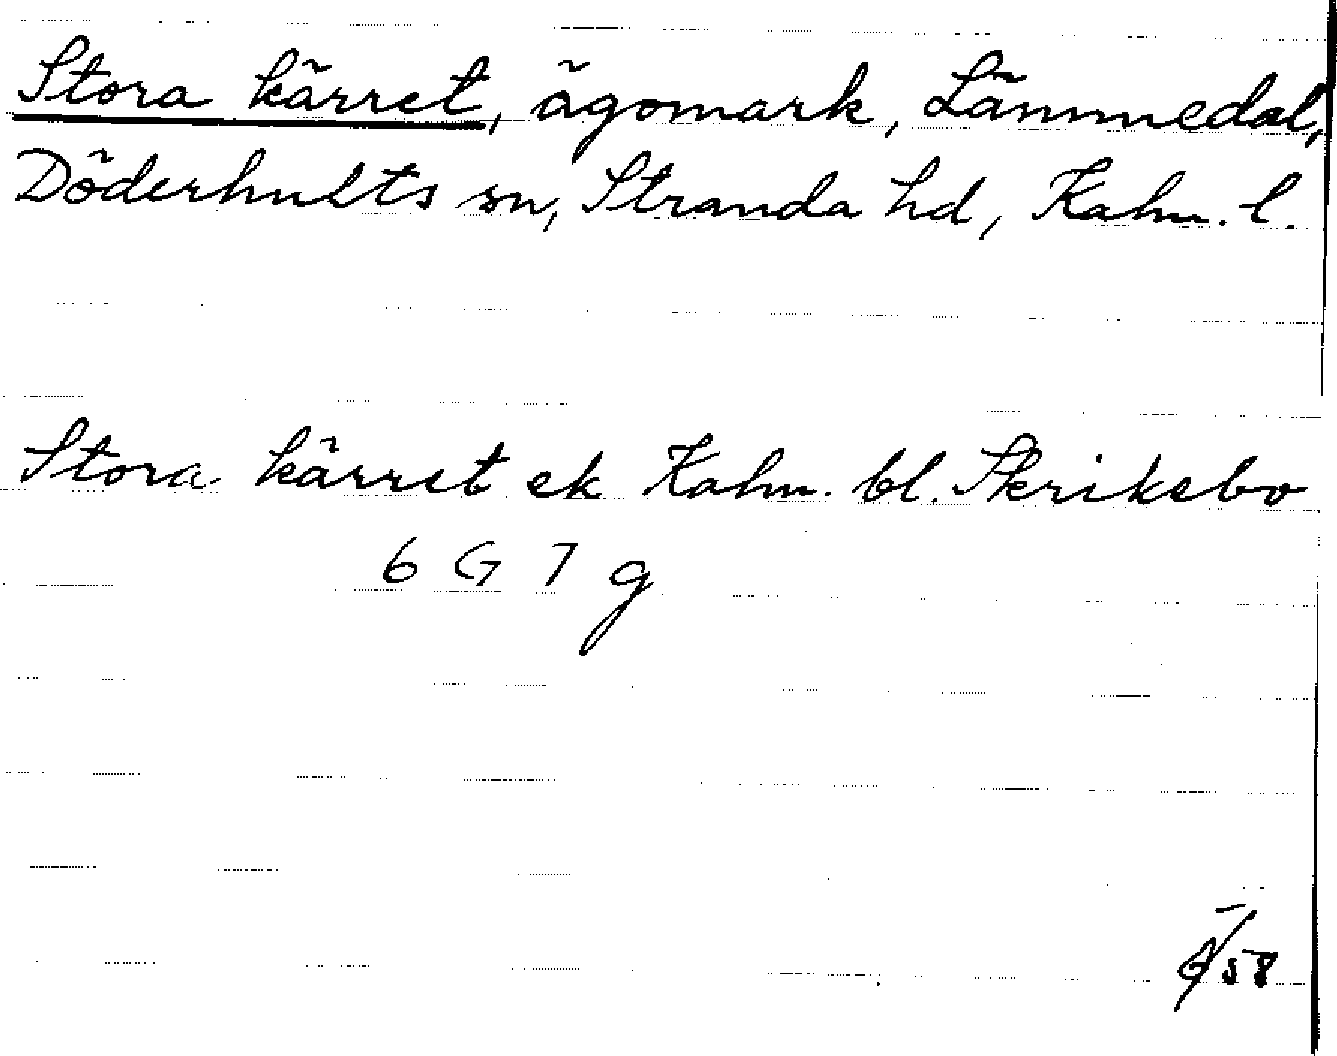 Stora kärret, ägomark, Lämmedal,
Döderhults sn, Stranda hd, Kalm. l.
Stora kärret ek Kalm. bl. Skriksbo
6 G 7 g
58